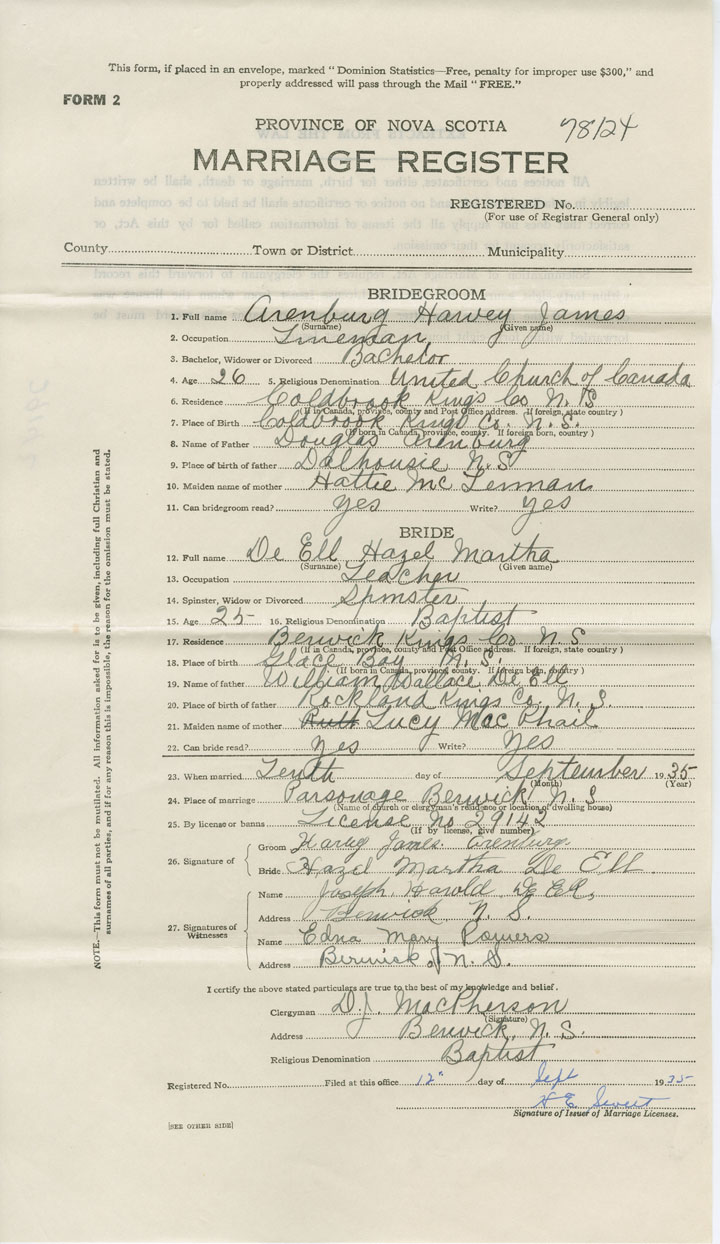 This form, if placed in an envelope, marked "Dominion Statistics—Free, penalty for improper use $300," and
properly addressed will pass through the Mail "FREE."
FORM 2
PROVINCE OF NOVA SCOTIA 78/24
MARRIAGE REGISTER
REGISTERED No.
(For use of Registrar General only)
County Town or District Municipality
BRIDEGROOM
1. Full name Arenburg Harvey James
(Surname) (Given name)
2. Occupation Lineman
3. Bachelor, Widower or Divorced Bachelor
4. Age 26 5. Religious Denomination United Church of Canada
6. Residence Coldbrook Kings Co. N.S
(If in Canada, province, county and Post Office address. If foreign, state country)
7. Place of Birth Coldbrook Kings Co. N.S.
(If born in Canada, province, county. If foreign born, country)
8. Name of Father Douglas Arenburg
9. Place of birth of father Dalhousie N.S
10. Maiden name of mother Hattie McLennan
11. Can bridegroom read? Yes Write? Yes
BRIDE
12. Full name De Ell Hazel Martha
(Surname) (Given name)
13. Occupation Teacher
14. Spinster, Widow or Divorced Spinster
15. Age 25 16. Religious Denomination Baptist
17. Residence Berwick Kings Co N.S
(If in Canada, province, county and Post Office address. If foreign, state country)
18. Place of birth Glace Bay N.S.
(If born in Canada, province, county. If foreign born, country)
19. Name of father William Wallace De Ell
20. Place of birth of father Rockland Kings Co. N.S.
21. Maiden name of mother Ruth Lucy MacPhail
22. Can bride read? Yes Write? Yes
23. When married Tenth day of September 1935
(Month) (Year)
24. Place of marriage Parsonage Berwick N.S
(Name of church or clergyman's residence or location of dwelling house)
25. By license or banns License No 29142
(If by license, give number)
26. Signature of
Groom Harvey James Arenburg
Bride Hazel Martha De Ell
27. Signatures of Witnesses
Name Joseph Harold De Ell
Address Berwick N.S.
Name Edna Mary Powers
Address Berwick, N.S.
I certify the above stated particulars are true to the best of my knowledge and belief.
Clergyman D.J. MacPherson
(Signature)
Address Berwick, N.S.
Religious Denomination Baptist
Registered No. Filed at this office 12" day of Sept 1935
H E
Signature of Issuer of Marriage Licenses.
[SEE OTHER SIDE]
NOTE.—This form must not be mutilated. All information asked for is to be given, including full Christian and
surnames of all parties, and if for any reason this is impossible, the reason for the omission must be stated.